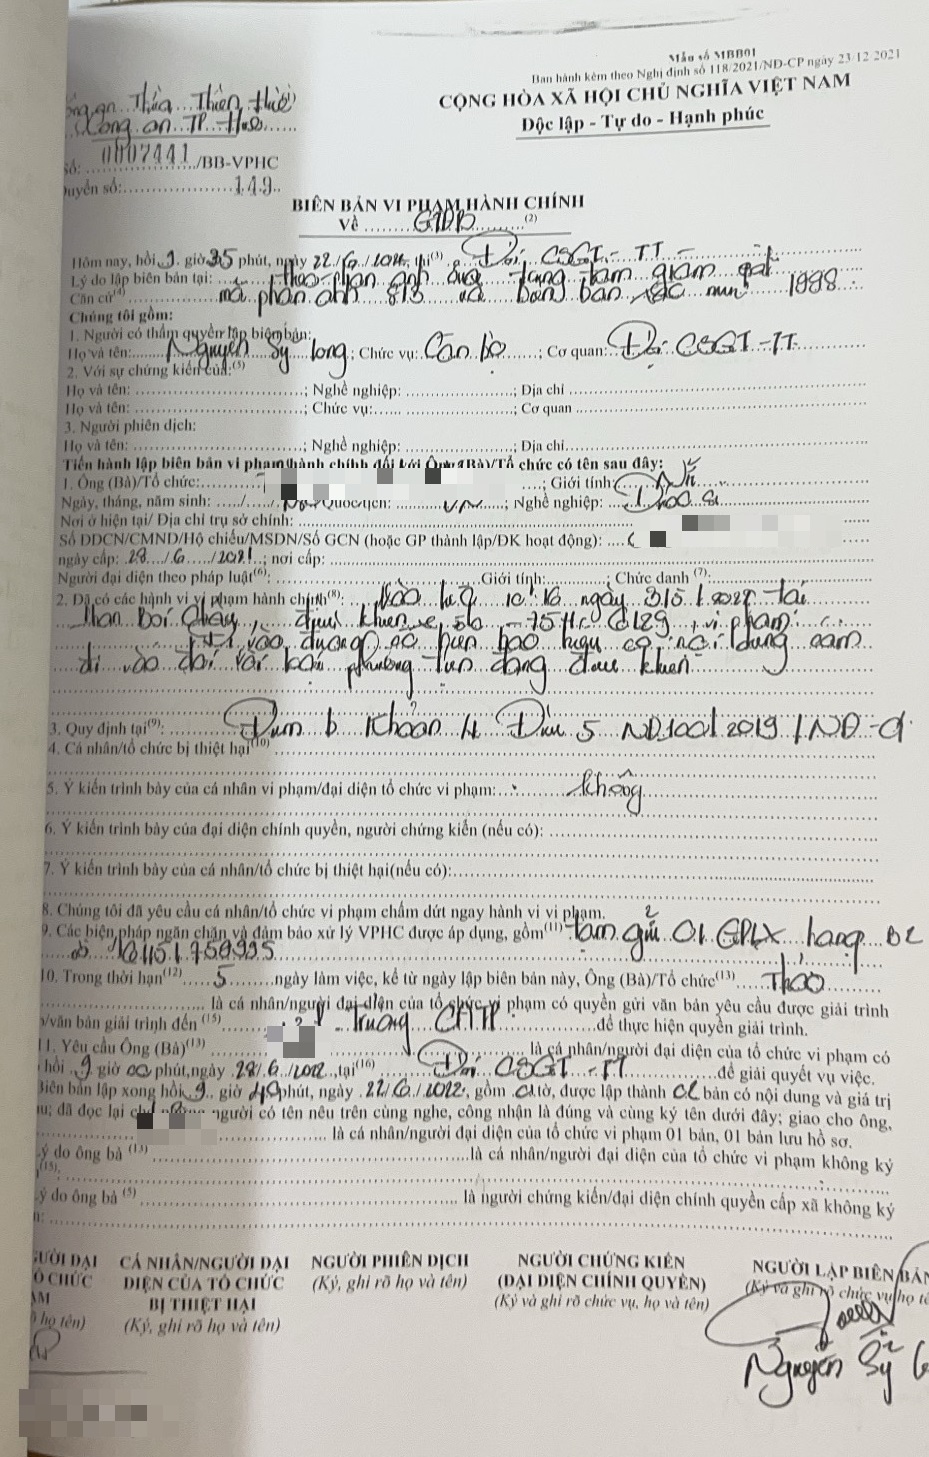 Mẫu số MBB01
Ban hành kèm theo Nghị định số 118/2021/NĐ-CP ngày 23/12/2021
CỘNG HÒA XÃ HỘI CHỦ NGHĨA VIỆT NAM
Độc lập - Tự do - Hạnh phúc
Thừa Thiên Huế
Công an TP Huế
số: 0007441 /BB-VPHC
quyển số: 149
BIÊN BẢN VI PHẠM HÀNH CHÍNH
Về GTĐB (2)
Hôm nay, hồi 9 giờ 35 phút, ngày 22/6/2022, tại(3) Đội CSGT-TT
Lý do lập biên bản tại: theo phản ánh trung tâm giám sát
Căn cứ(4) mã phản ánh 813 và 1998
Chúng tôi gồm:
1. Người có thẩm quyền lập biên bản:
Họ và tên: Nguyễn Sỹ long; Chức vụ: Cán bộ; Cơ quan: Đội CSGT-TT
2. Với sự chứng kiến của:(5)
Họ và tên: ; Nghề nghiệp: ; Địa chỉ
Họ và tên: ; Chức vụ: ; Cơ quan
3. Người phiên dịch:
Họ và tên: ; Nghề nghiệp: ; Địa chỉ
Tiến hành lập biên bản vi phạm hành chính đối với Ông (Bà)/Tổ chức có tên sau đây:
1. Ông (Bà)/Tổ chức: ; Giới tính: Nữ
Ngày, tháng, năm sinh: / / Quốc tịch: VN; Nghề nghiệp:
Nơi ở hiện tại/ Địa chỉ trụ sở chính:
Số DDCN/CMND/Hộ chiếu/MSDN/Số GCN (hoặc GP thành lập/ĐK hoạt động):
ngày cấp: 28/6/2021; nơi cấp:
Người đại diện theo pháp luật(6): Giới tính: ; Chức danh (7):
2. Đã có các hành vi vi phạm hành chính(8): Vào lúc 10h16 ngày 315/2022 tại
Phan Bội Châu, điều khiển xe ô tô 75H, vi phạm:
đi vào đường có biển báo hiệu có nội dung cấm
đi vào đối với loại phương tiện đang điều khiển
3. Quy định tại(9): Điểm b Khoản 4 Điều 5 NĐ100/2019/NĐ-CP
4. Cá nhân/tổ chức bị thiệt hại(10)
5. Ý kiến trình bày của cá nhân vi phạm/đại diện tổ chức vi phạm: không
6. Ý kiến trình bày của đại diện chính quyền, người chứng kiến (nếu có):
7. Ý kiến trình bày của cá nhân/tổ chức bị thiệt hại(nếu có):
8. Chúng tôi đã yêu cầu cá nhân/tổ chức vi phạm chấm dứt ngay hành vi vi phạm.
9. Các biện pháp ngăn chặn và đảm bảo xử lý VPHC được áp dụng, gồm(11): tạm giữ 01 GPLX hạng B2
số
10. Trong thời hạn(12) 5 ngày làm việc, kể từ ngày lập biên bản này, Ông (Bà)/Tổ chức(13) Thảo
là cá nhân/người đại diện của tổ chức vi phạm có quyền gửi văn bản yêu cầu được giải trình
/văn bản giải trình đến (15) Trưởng CATP để thực hiện quyền giải trình.
11. Yêu cầu Ông (Bà)(13) là cá nhân/người đại diện của tổ chức vi phạm có
hồi 9 giờ 00 phút, ngày 28/6/2022, tại(16) Đội CSGT-TT để giải quyết vụ việc.
Biên bản lập xong hồi 9 giờ 40 phút, ngày 22/6/2022, gồm 01 tờ, được lập thành 02 bản có nội dung và giá trị
; đã đọc lại cho những người có tên nêu trên cùng nghe, công nhận là đúng và cùng ký tên dưới đây; giao cho ông,
là cá nhân/người đại diện của tổ chức vi phạm 01 bản, 01 bản lưu hồ sơ.
Lý do ông bà (13) là cá nhân/người đại diện của tổ chức vi phạm không ký
(15):
Lý do ông bà (5) là người chứng kiến/đại diện chính quyền cấp xã không ký
CÁ NHÂN/NGƯỜI ĐẠI DIỆN CỦA TỔ CHỨC BỊ THIỆT HẠI
(Ký, ghi rõ họ và tên)
NGƯỜI PHIÊN DỊCH
(Ký, ghi rõ họ và tên)
NGƯỜI CHỨNG KIẾN
(ĐẠI DIỆN CHÍNH QUYỀN)
(Ký và ghi rõ chức vụ, họ và tên)
NGƯỜI LẬP BIÊN BẢN
(Ký và ghi rõ chức vụ, họ tên
Nguyễn Sỹ